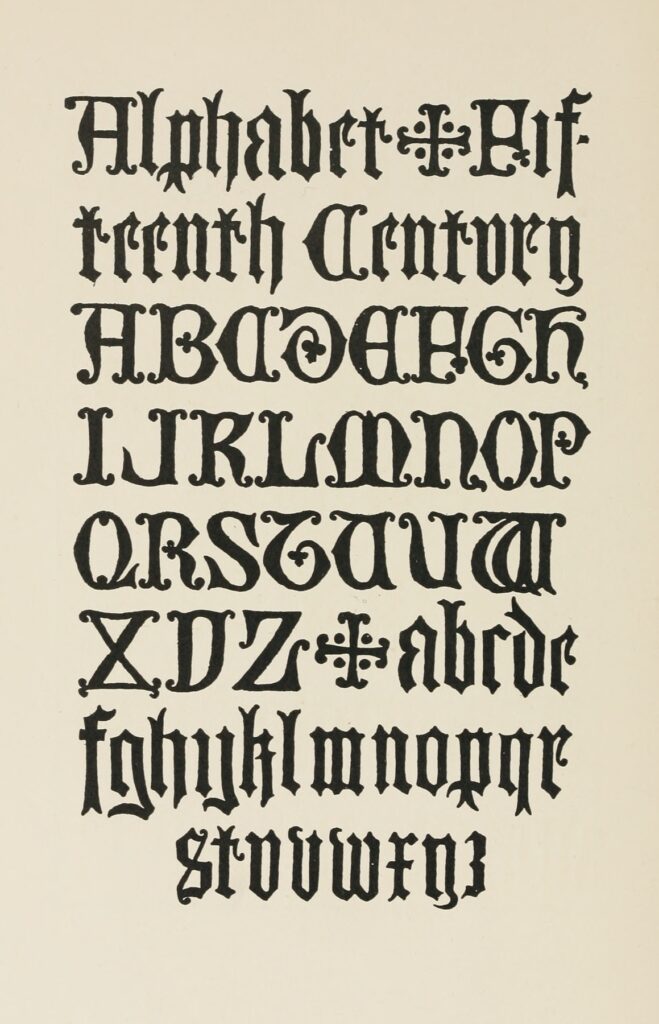 Alphabet ✠ Fif-
teenth Century
ABCDEFGH
IJKLMNOP
QRSTUVW
XYZ ✠ abcde
fghijklmnopqr
stuvwxyz